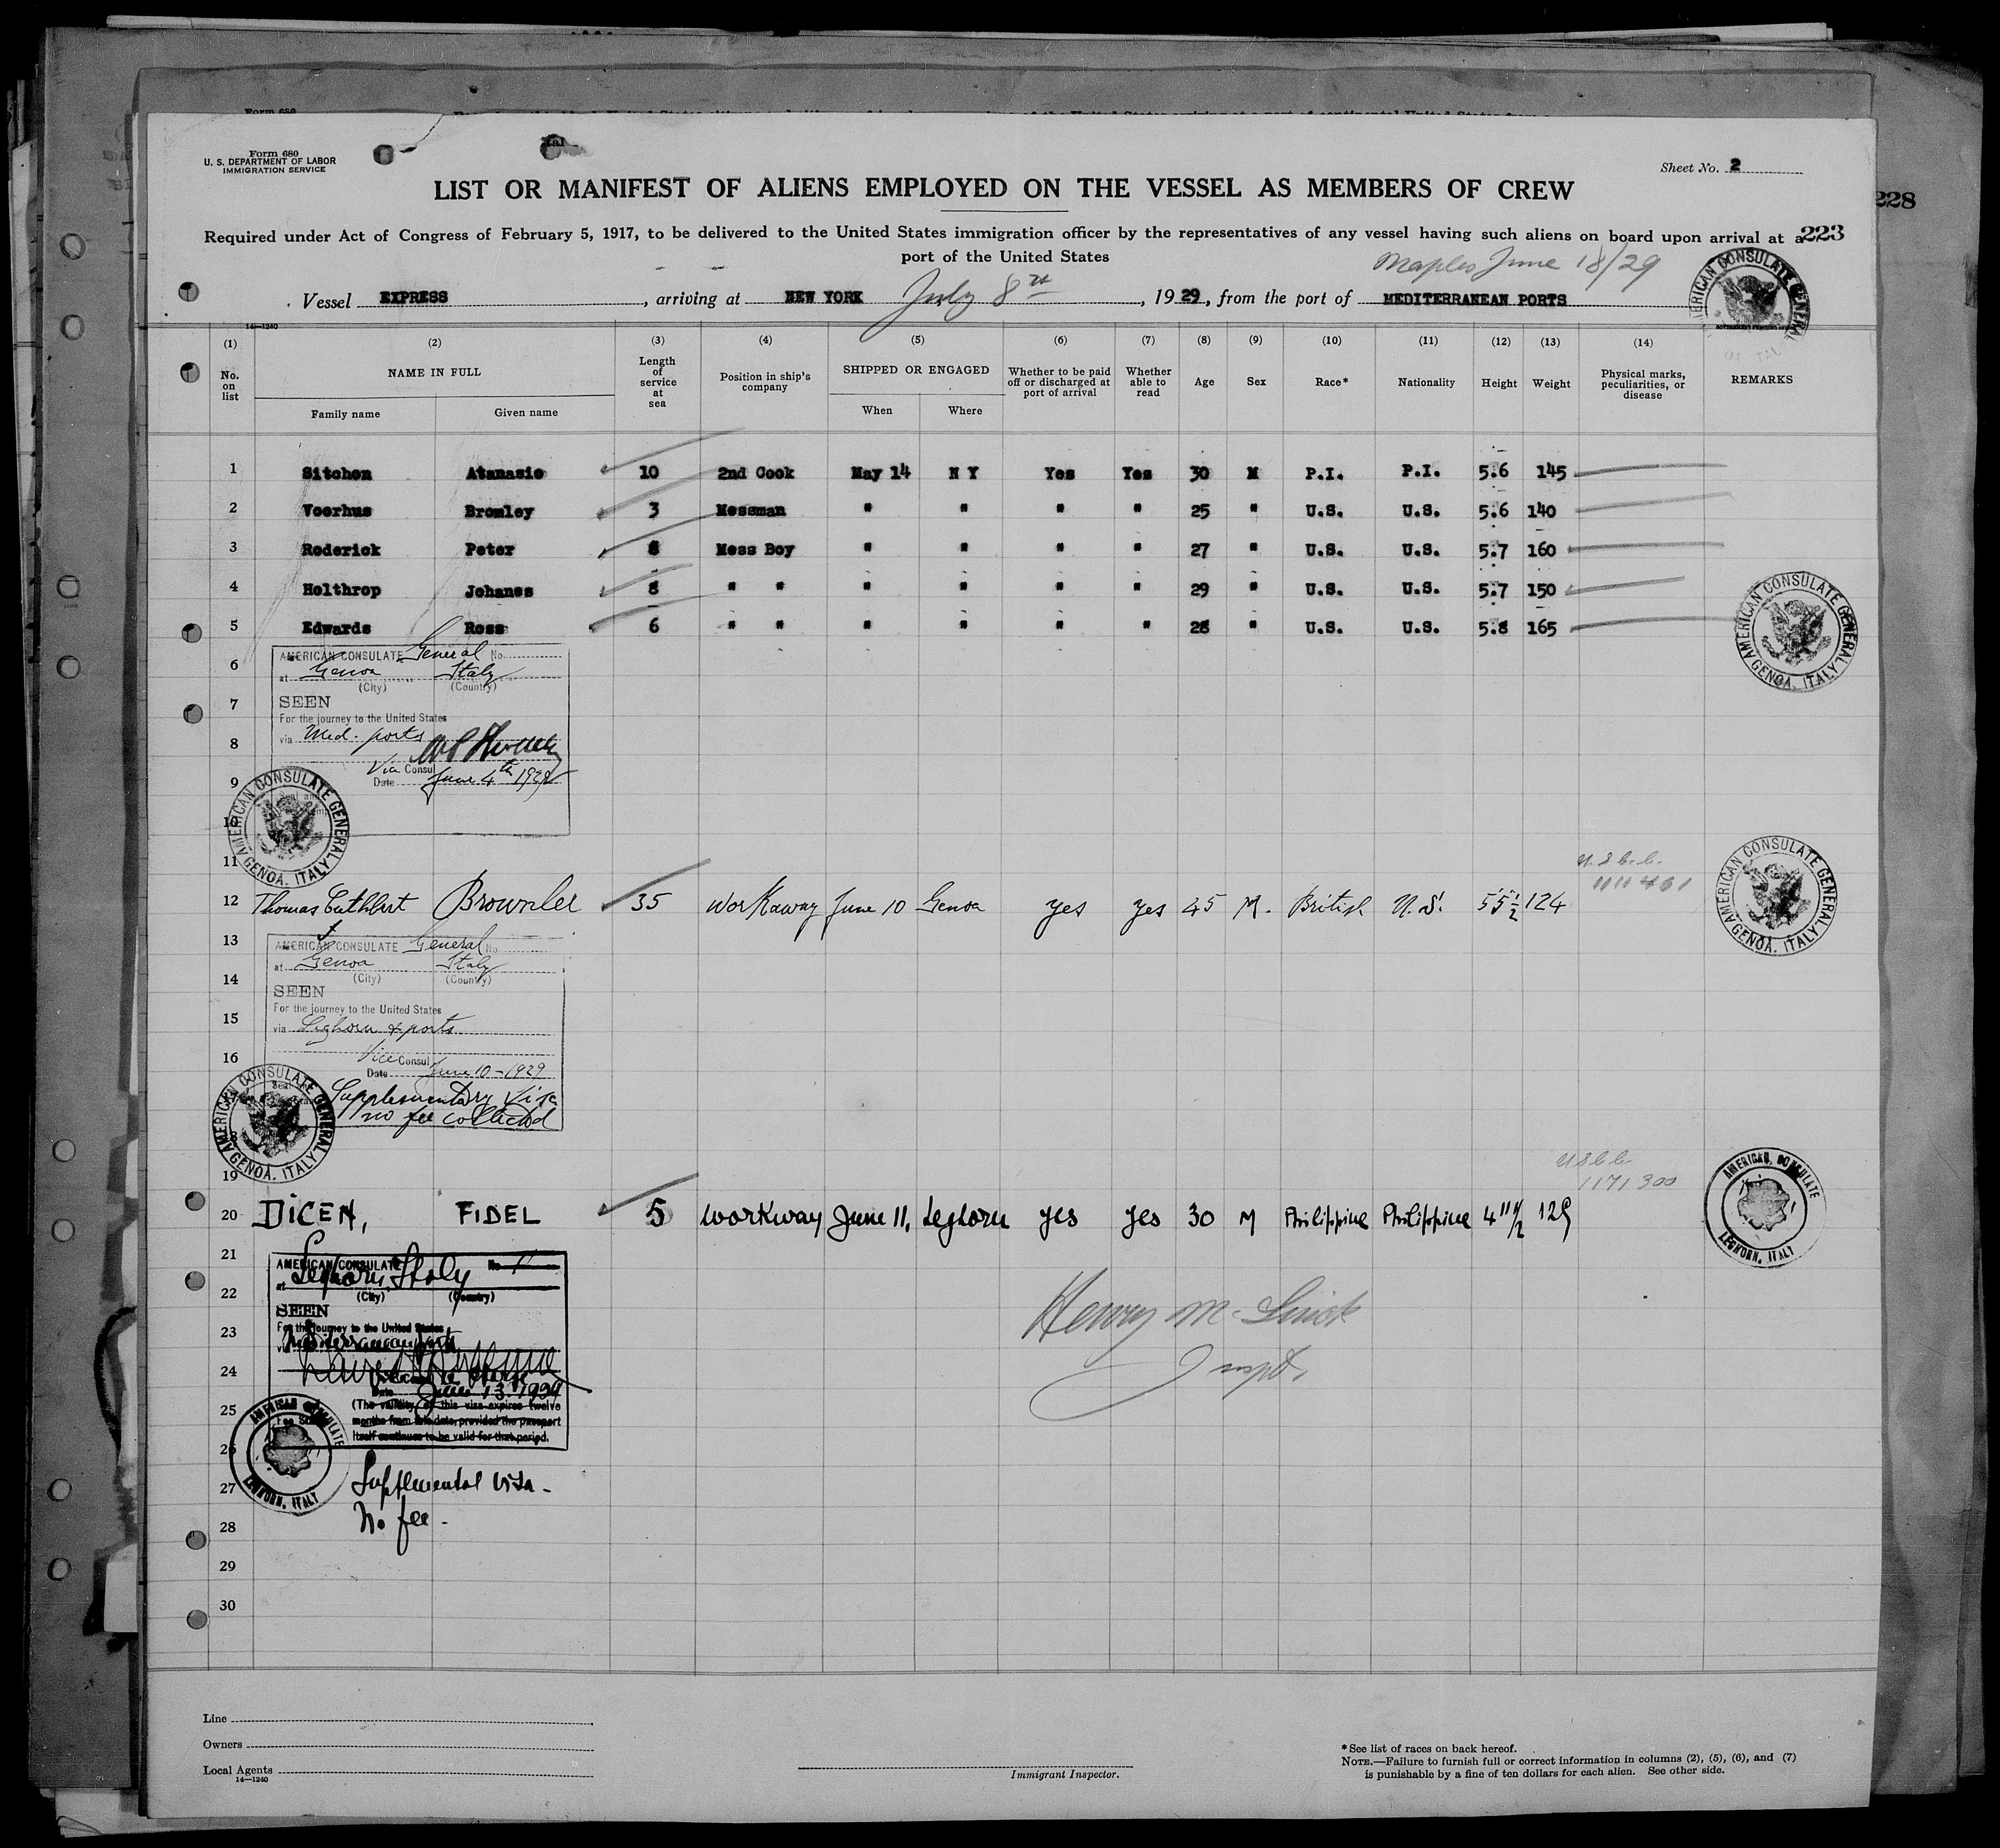 Form 680
U. S. DEPARTMENT OF LABOR
IMMIGRATION SERVICE
Sheet No. 2
LIST OR MANIFEST OF ALIENS EMPLOYED ON THE VESSEL AS MEMBERS OF CREW
228
Required under Act of Congress of February 5, 1917, to be delivered to the United States immigration officer by the representatives of any vessel having such aliens on board upon arrival at a 223
port of the United States
June 18/29
Vessel EXPRESS, arriving at NEW YORK July 8th, 1929, from the port of MEDITERRANEAN PORTS
14—1240
(1) (2) (3) (4) (5) (6) (7) (8) (9) (10) (11) (12) (13) (14)
No. on list NAME IN FULL Family name Given name Length of service at sea Position in ship's company SHIPPED OR ENGAGED When Where Whether to be paid off or discharged at port of arrival Whether able to read Age Sex Race* Nationality Height Weight Physical marks, peculiarities, or disease REMARKS
1 Sitchon Atanasio 10 2nd Cook May 14 N Y Yes Yes 30 M P.I. P.I. 5:6 145
2 Voorhus Bromley 3 Messman " " " " 25 " U.S. U.S. 5:6 140
3 Roderick Peter 8 Mess Boy " " " " 27 " U.S. U.S. 5:7 160
4 Holthrop Johanes 8 " " " " " " 29 " U.S. U.S. 5:7 150
5 Edwards Ross 6 " " " " " " 28 " U.S. U.S. 5:8 165
AMERICAN CONSULATE GENERAL GENOA, ITALY
6 AMERICAN CONSULATE General No.
at Genoa Italy
(City) (Country)
7 SEEN
For the journey to the United States
8 via Med. ports
Vice Consul
9 Date June 4th 1929
10
AMERICAN CONSULATE GENERAL GENOA, ITALY
11
12 Thomas Cuthbert Brownlee 35 workaway June 10 Genoa yes yes 45 M. British U.S. 5'5½ 124
AMERICAN CONSULATE GENERAL GENOA, ITALY
13 AMERICAN CONSULATE General No
at Genoa Italy
14 (City) (Country)
SEEN
For the journey to the United States
15 via Leghorn & ports
16 Vice Consul
Date June 10-1929
Supplementary Visa
no fee collected
AMERICAN CONSULATE GENERAL GENOA, ITALY
19
20 DICEN, FIDEL 5 workway June 11, Leghorn yes yes 30 M Philippine Philippine 4'11½ 129
AMERICAN CONSULATE LEGHORN, ITALY
21 AMERICAN CONSULATE No
at Leghorn, Italy
22 (City) (Country)
SEEN
23 For the journey to the United States
via Mediterranean ports
24
Date June 13. 1929
25 (The validity of this visa expires twelve
months from this date, provided the passport
itself continues to be valid for that period.
26
AMERICAN CONSULATE LEGHORN, ITALY
Henry
Inspt.
27 Supplemental visa -
28 No fee -
29
30
Line
Owners
Local Agents
14—1240
Immigrant Inspector.
*See list of races on back hereof.
NOTE.—Failure to furnish full or correct information in columns (2), (5), (6), and (7)
is punishable by a fine of ten dollars for each alien. See other side.